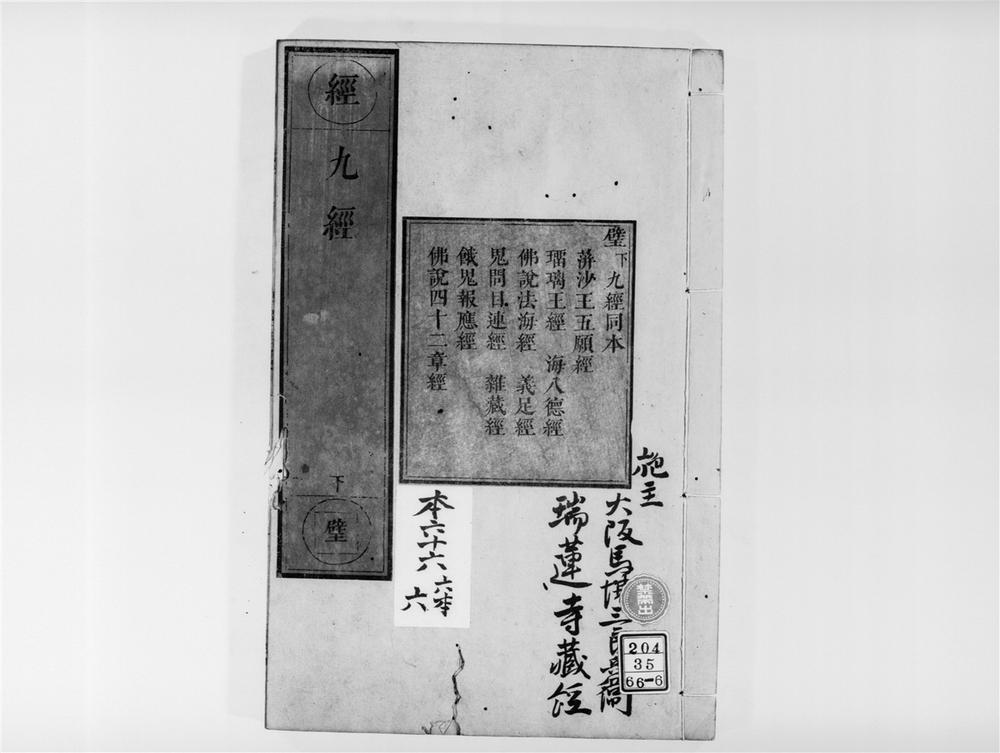 經
九經
下
璧
璧下 九經同本
蓱沙王五願經
瑠璃王經 海八德經
佛說法海經 義足經
鬼問目連經 雜藏經
餓鬼報應經
佛說四十二章經
施主
大阪馬場三郎兵衛
瑞蓮寺藏經
本六十六
六本
六
禁帶出
204
35
66-6